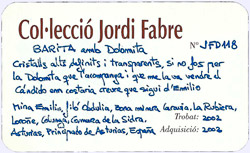 Col·lecció Jordi Fabre
BARITA amb Dolomita
Nº JFD118
Cristalls alts definits i transparents, si no fos per
la Dolomita que l'acompanya i que me la va vendre el
Cándido em costaria creure que sigui d'Emilio
Mina Emilio, filó Obdulia, Zona minera Caravia, La Rubiera,
Loroñe, Colunga, Comarca de la Sidra,
Asturias, Principado de Asturias, España
Trobat: 2002
Adquisició: 2002